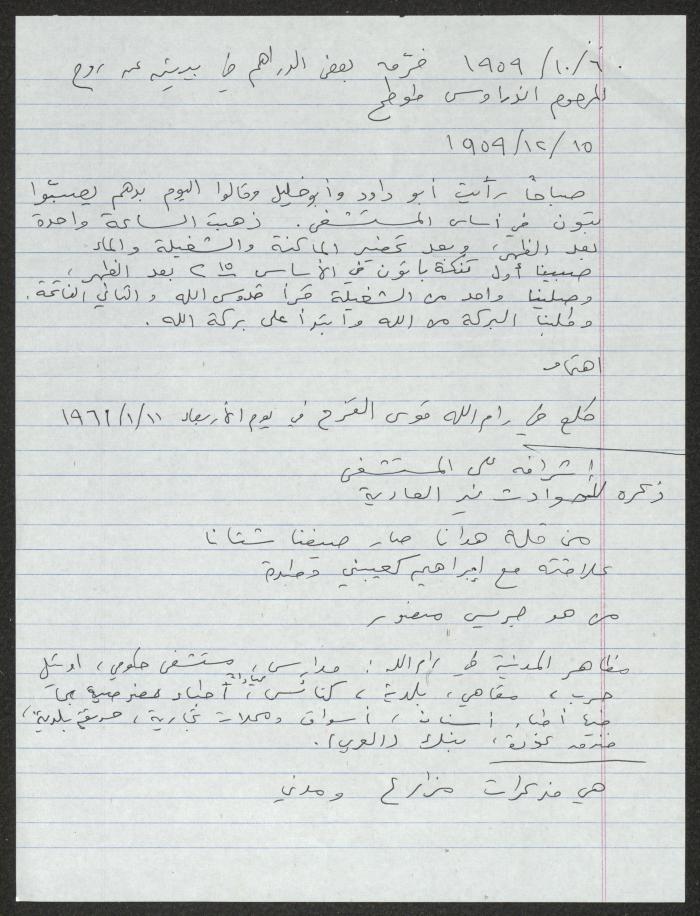 ١٩٥٩/١٠/٦ فرّقت بعض الدراهم في بيدية عن روح
المرحوم اندراوس طوطح
١٩٥٩/١٢/١٥
صباحاً رأيت أبو داود وأبو خليل وقالوا اليوم بدهم يصبّوا
بتون في أساس المستشفى. ذهبت الساعة واحدة
بعد الظهر، وبعد تحضير الماكنة والشغيلة والماء
صبينا أول تنكة باتون في الأساس ٢ ١٥ بعد الظهر،
وصلينا واحد من الشغيلة قرأ قدوس الله والثاني الفاتحة.
وطلبنا البركة من الله وابتدأ على بركة الله.
اهتمام
طلع في رام الله قوس القزح في يوم الأربعاء ١٩٦١/١/١١
اشرافه على المستشفى
ذكره للحوادث غير العادية
من قلة هدانا صار صيفنا شتانا
علاقته مع إبراهيم كعيبني وطيدة
من هو جريس منصور
مظاهر المدنية في رام الله: مدارس، مستشفى حكومي، اوتيل
حرب، مقاهي، بلدية، كنائس، عيادات أطباء
أطباء أسنان، أسواق ومحلات تجارية، حديقة بلدية،
بنك (العربي).
هي مذكرات مزارع ومدني